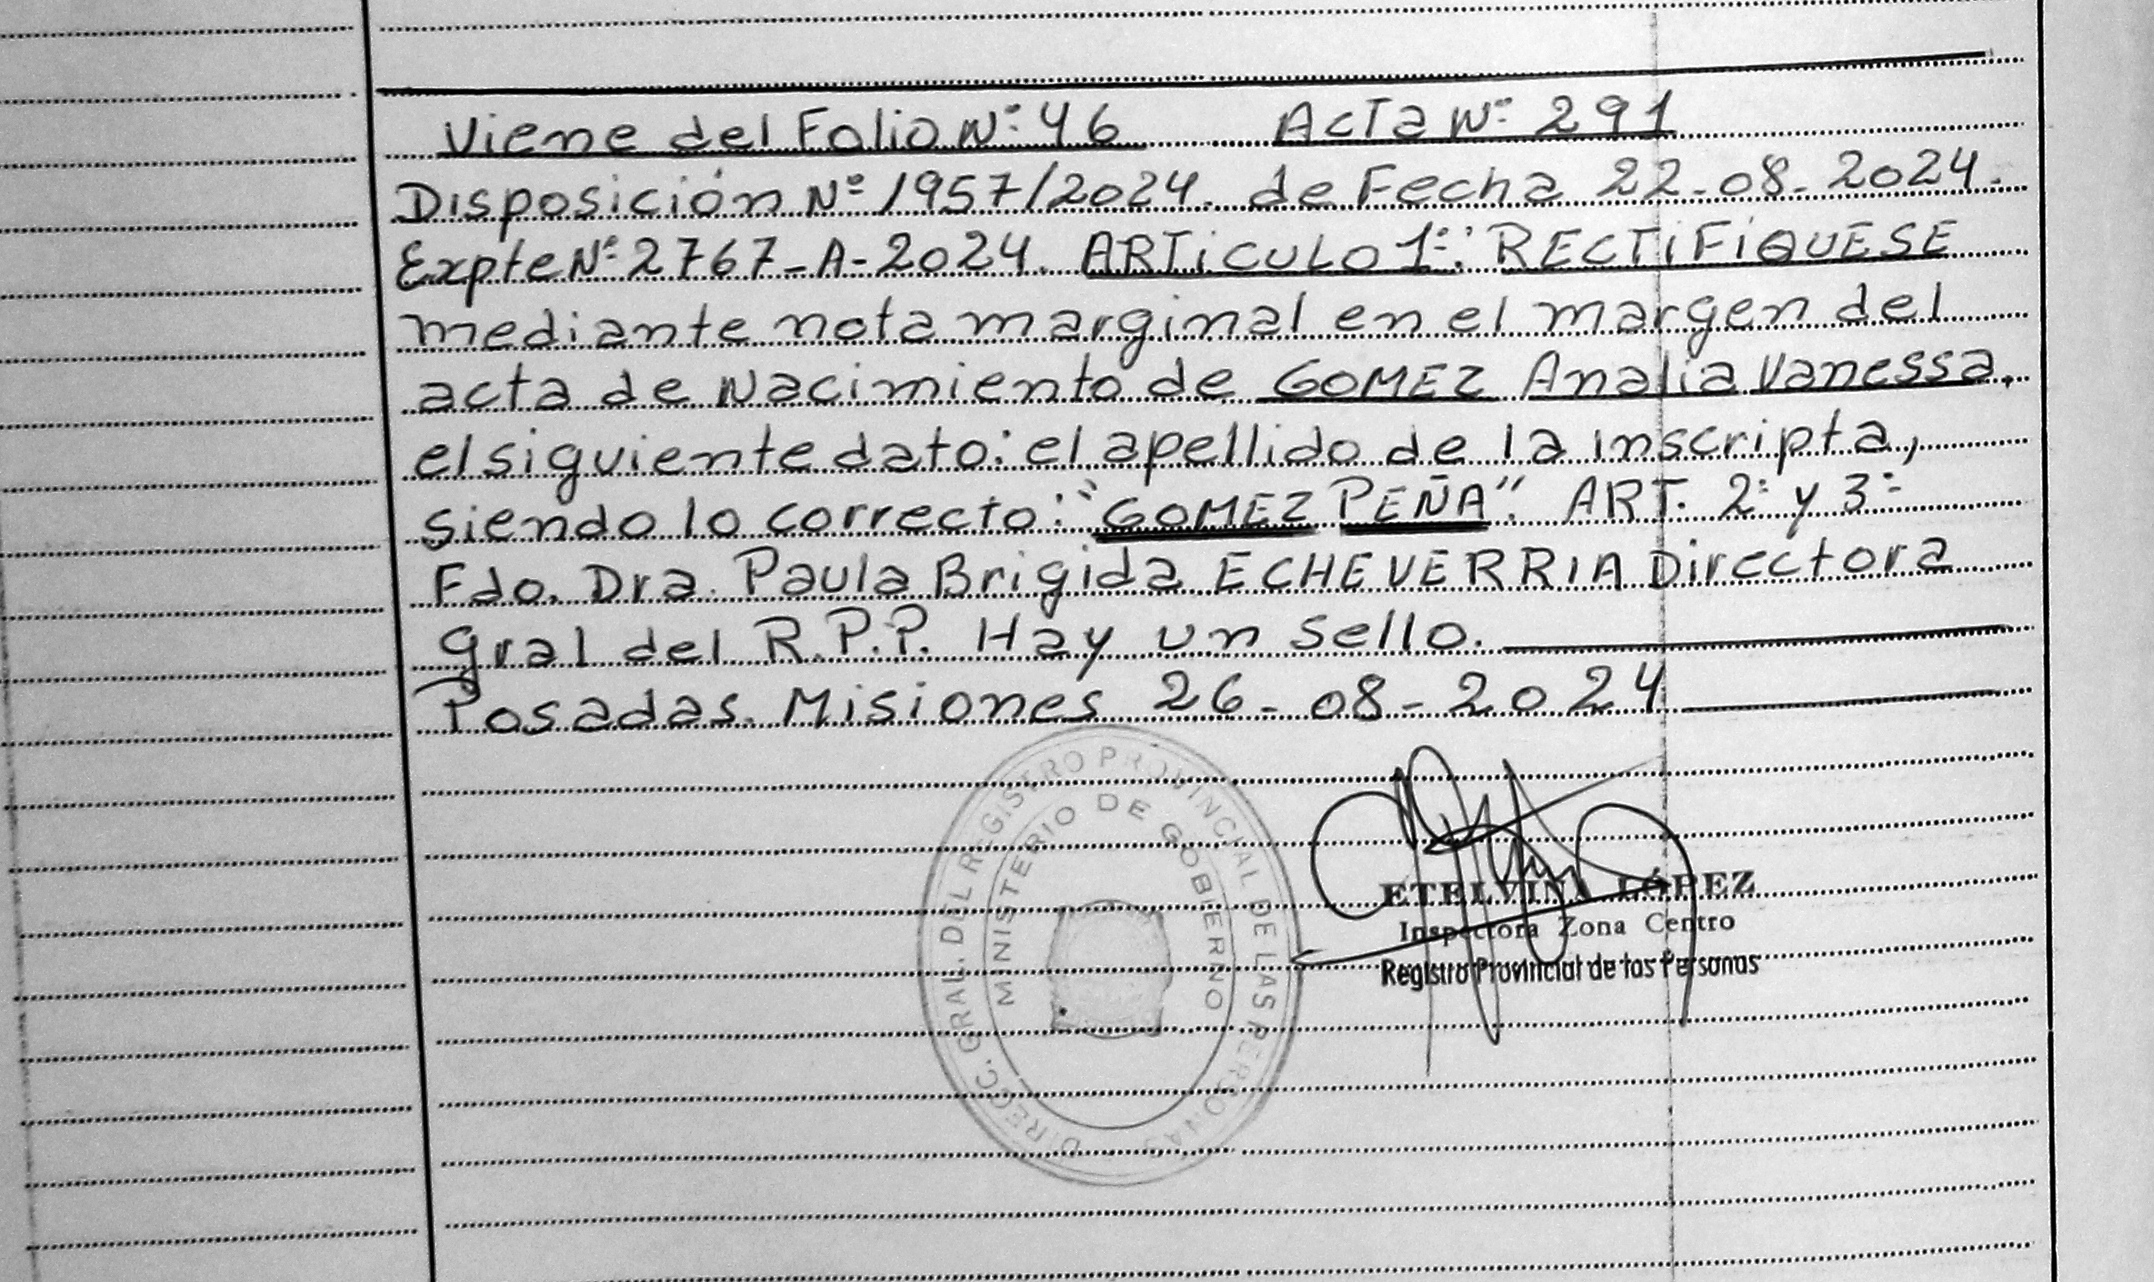 Viene del Folio Nº: 46 Acta Nº 291
Disposición Nº 1957/2024. de Fecha 22-08-2024.
Expte Nº 2767-A-2024. ARTiCULO 1º: RECTiFíQUESE
mediante nota marginal en el margen del
acta de Nacimiento de GOMEZ Analía Vanessa,
el siguiente dato: el apellido de la inscripta,
siendo lo correcto: "GOMEZ PEÑA". ART. 2º y 3º
Fdo. Dra. Paula Brigida ECHEVERRIA Directora
Gral del R.P.P. Hay un sello.
Posadas. Misiones 26-08-2024
DIRECC. GRAL. DEL REGISTRO PROVINCIAL DE LAS PERSONAS
MINISTERIO DE GOBIERNO
ETELVINA LÓPEZ
Inspectora Zona Centro
Registro Provincial de las Personas